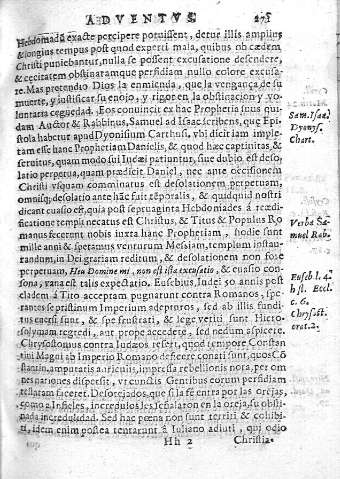 ADVENTVS 275
Hebdomadũ exacte percipere potuissent, detur illis amplius
& longius tempus post quod experti mala, quibus nb cædem
Christi puniebantur, nulla se possent excusatione defendere,
& cęcitatem obstinatamque perfidiam nullo colore excusa-
re. Mas pretendio Dios la enmienda, que la vengança de su
muerte, y justificar su enojo, y rigor en la obstinacion y vo-
luntaria ceguedad. Eos conuincit ex hac Prophetia inus qui-
dam Auctor & Rabbinus, Samuel ad Isaac scribens, que Epi-
stola habetur apud Dyonisium Carthusi. vbi dicit iam imple-
tam esse hanc Prophetiam Danielis, & quod hæc captiuitas, &
seruitus, quam modo sui Iudæi patiuntur, siue dubio est deso-
latio perpetua, quam prædicit Daniel, nec ante occisionem
Christi vsquam comminatus est desolationem perpetuam,
omnisq; desolatio ante hãc fuit tẽporalis, & quidquid nostri
dicant euasio est, quia post septuaginta Hebdomades a reædi-
ficatione templi necatus est Christus, & Titus & Populus Ro
manus fecerunt nobis iuxta hanc Prophetiam, hodie sunt
mille anni & speramus venturum Messiam, templum instau-
randum, in Dei gratiam reditum, & desolationem non fore
perpetuam, Heu Domine mi, non est ista excusatio, & euasio con-
sona, vana est talis expectatio. Eusebius, Iudei 50 annis post
cladem à Tito acceptam pugnarunt contra Romanos, spe-
rantes se pristinum Imperium adepturos, sed ab illis fundi-
tus euersi sunt, & spe frustrati, & lege vetiti sunt Hiero-
solymam regredi, aut prope accedere, sed nedum aspicere.
Chrysostomus contra Iudæos refert, quod tempore Constan
tini Magni ab Imperio Romano deficere conati sunt, quos Cõ
stantio, amputatis auriculis, impressa rebellionis nota, per om
nes nationes dispersit, vt cunctis Gentibus eorum perfidiam
testatam faceret. Desorejados, que si la fè entra por las orejas,
como a Infieles, incredulos les señalaron en la oreja, su obsti-
nada incredulidad. Sed hac pæna non sunt territi & cohibi-
ti, idem enim postea tentarunt à Iuliano adiuti, qui odio
Hh 2 Christia-
Sam. Isaac.
Dyonys.
Chart.
Verba Sa-
muel Rab.
Euseb l. 4.
hist. Eccl.
c. 6.
Chrysost.
orat. 2.